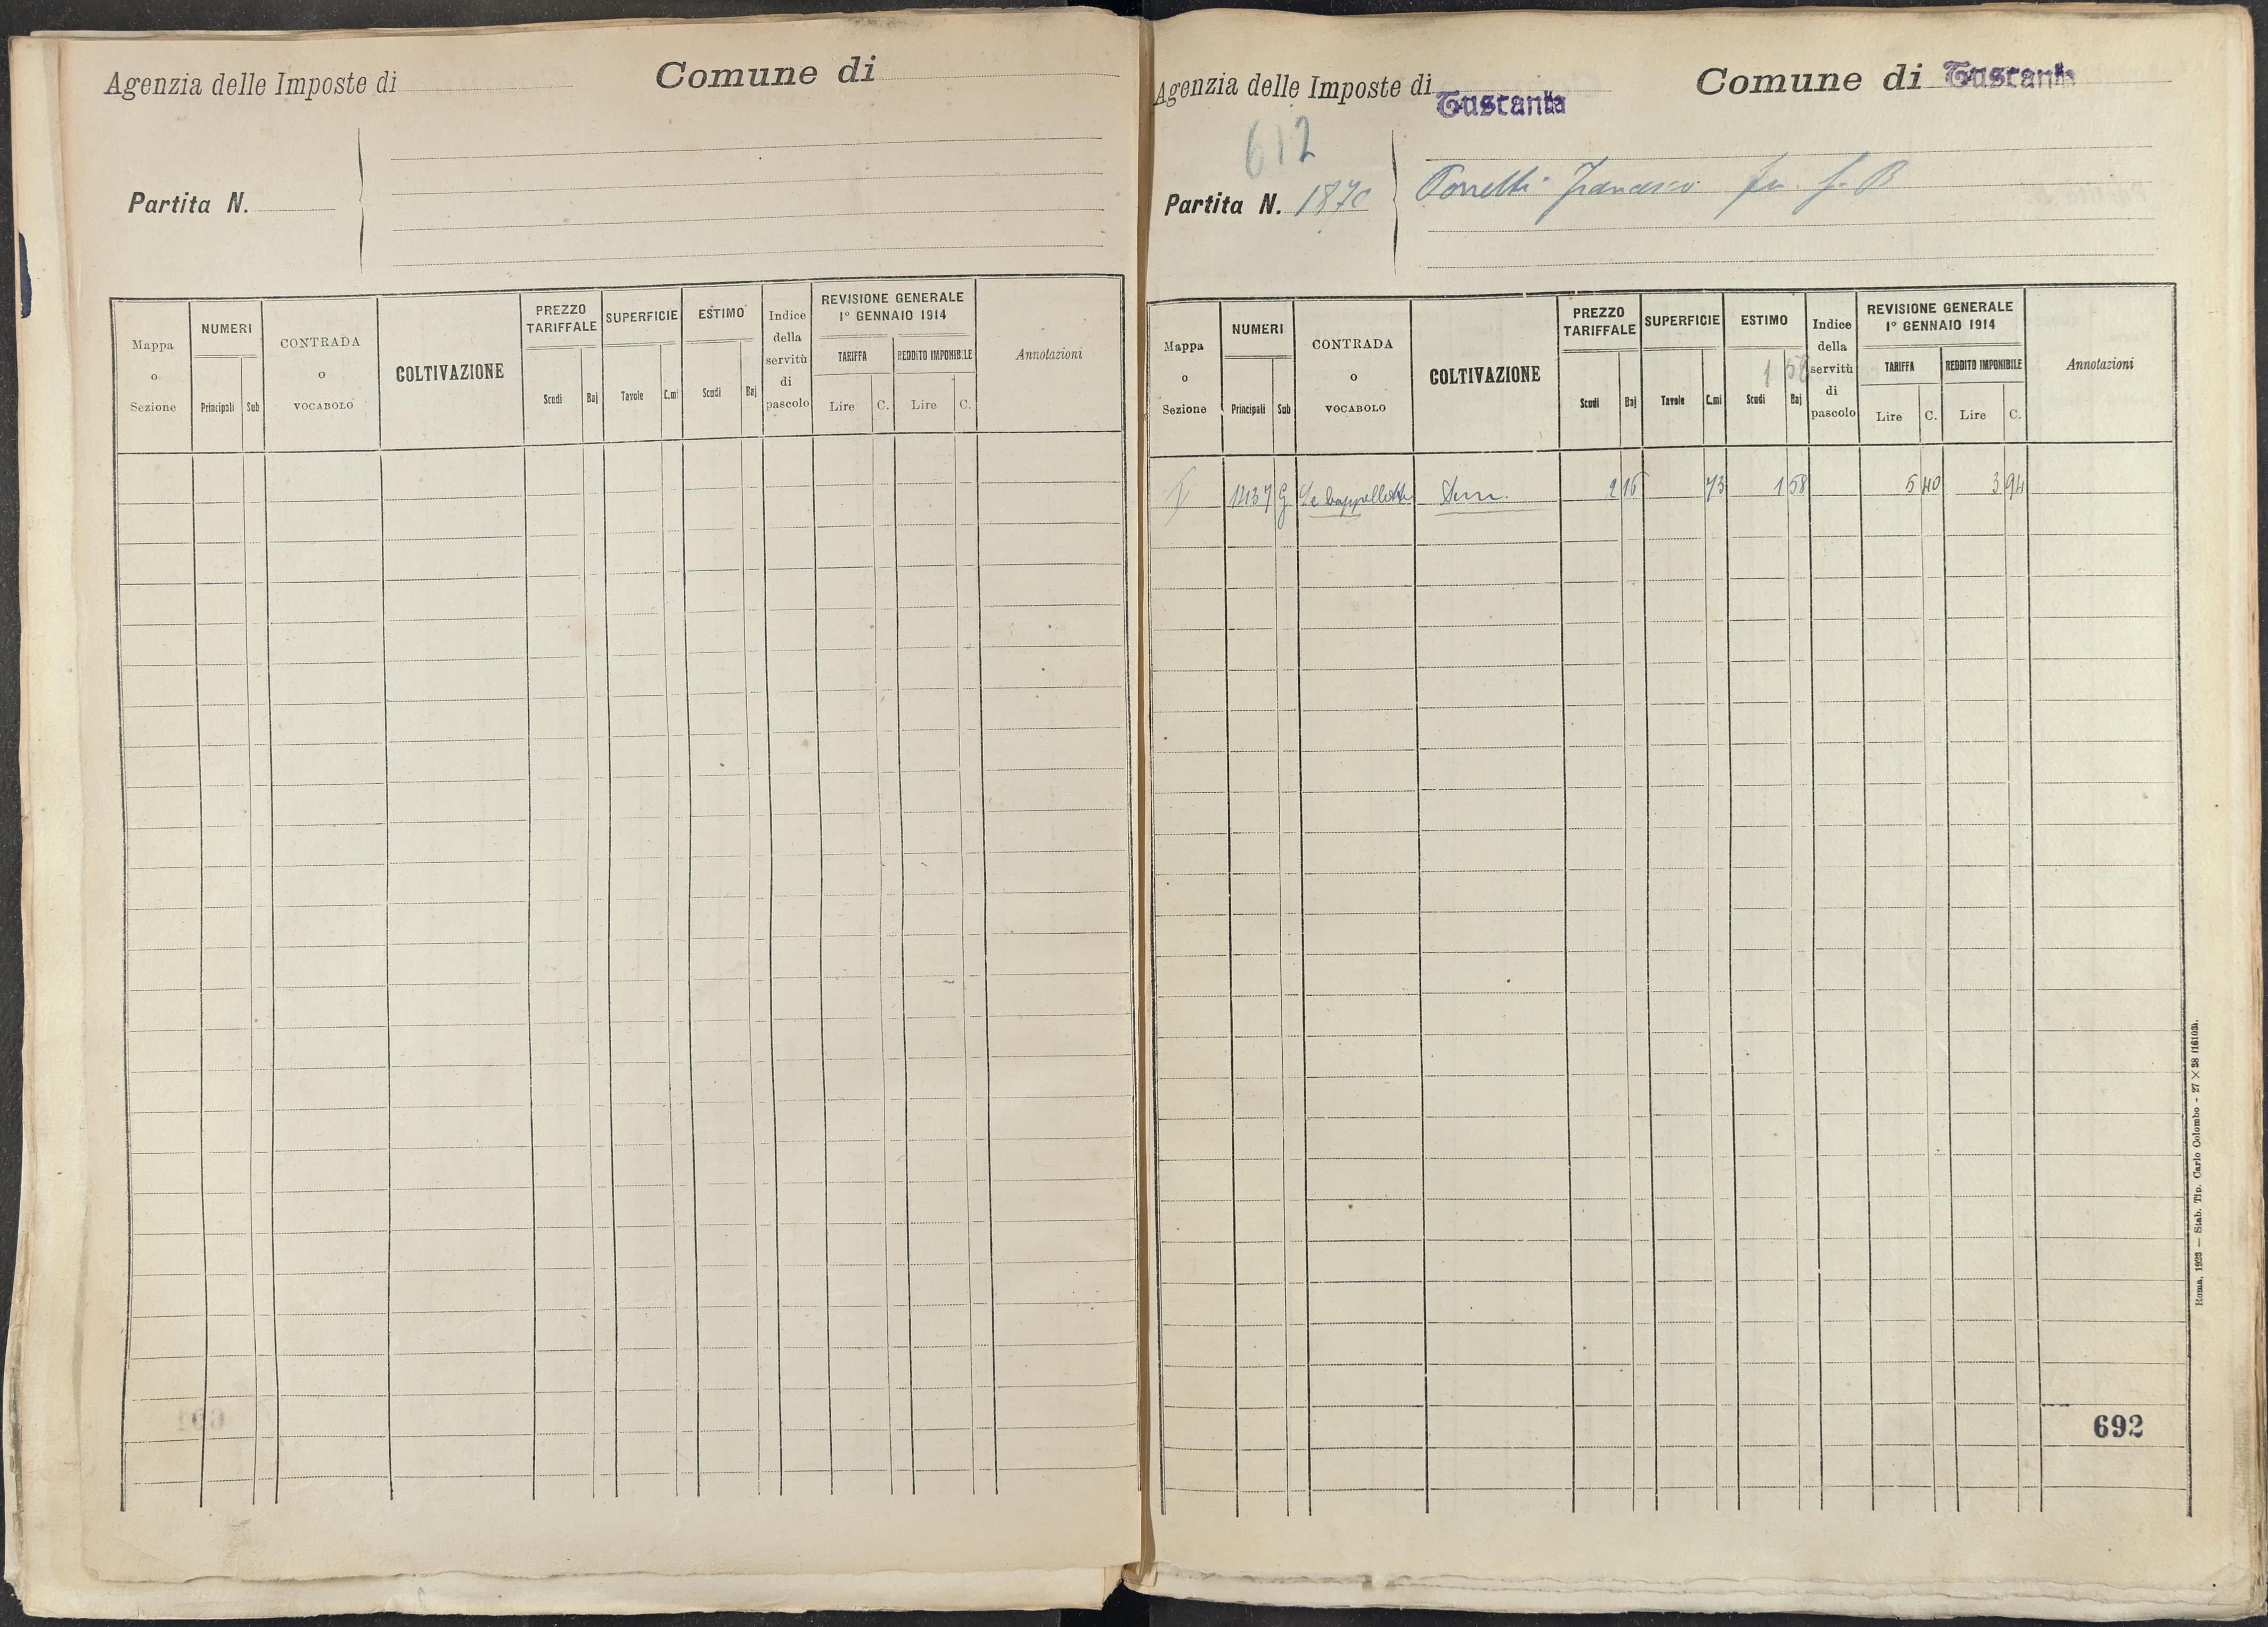 Agenzia delle Imposte di
Comune di
Partita N.
Mappa o Sezione
NUMERI
Principali
Sub
CONTRADA o VOCABOLO
COLTIVAZIONE
PREZZO TARIFFALE
Scudi
Baj
SUPERFICIE
Tavole
C.mi
ESTIMO
Scudi
Baj
Indice della servitù di pascolo
REVISIONE GENERALE
1° GENNAIO 1914
TARIFFA
Lire
C.
REDDITO IMPONIBILE
Lire
C.
Annotazioni
Agenzia delle Imposte di Tuscania
Comune di Tuscania
612
Partita N. 1870
Francesco fu G. B
Mappa o Sezione
NUMERI
Principali
Sub
CONTRADA o VOCABOLO
COLTIVAZIONE
PREZZO TARIFFALE
Scudi
Baj
SUPERFICIE
Tavole
C.mi
ESTIMO
1 58
Scudi
Baj
Indice della servitù di pascolo
REVISIONE GENERALE
1° GENNAIO 1914
TARIFFA
Lire
C.
REDDITO IMPONIBILE
Lire
C.
Annotazioni
1437 G Le Cappellette Sem. 2 16 73 1 58 5 40 3 94
692
Roma, 1923 — Stab. Tip. Carlo Colombo - 27 × 38 (16103).